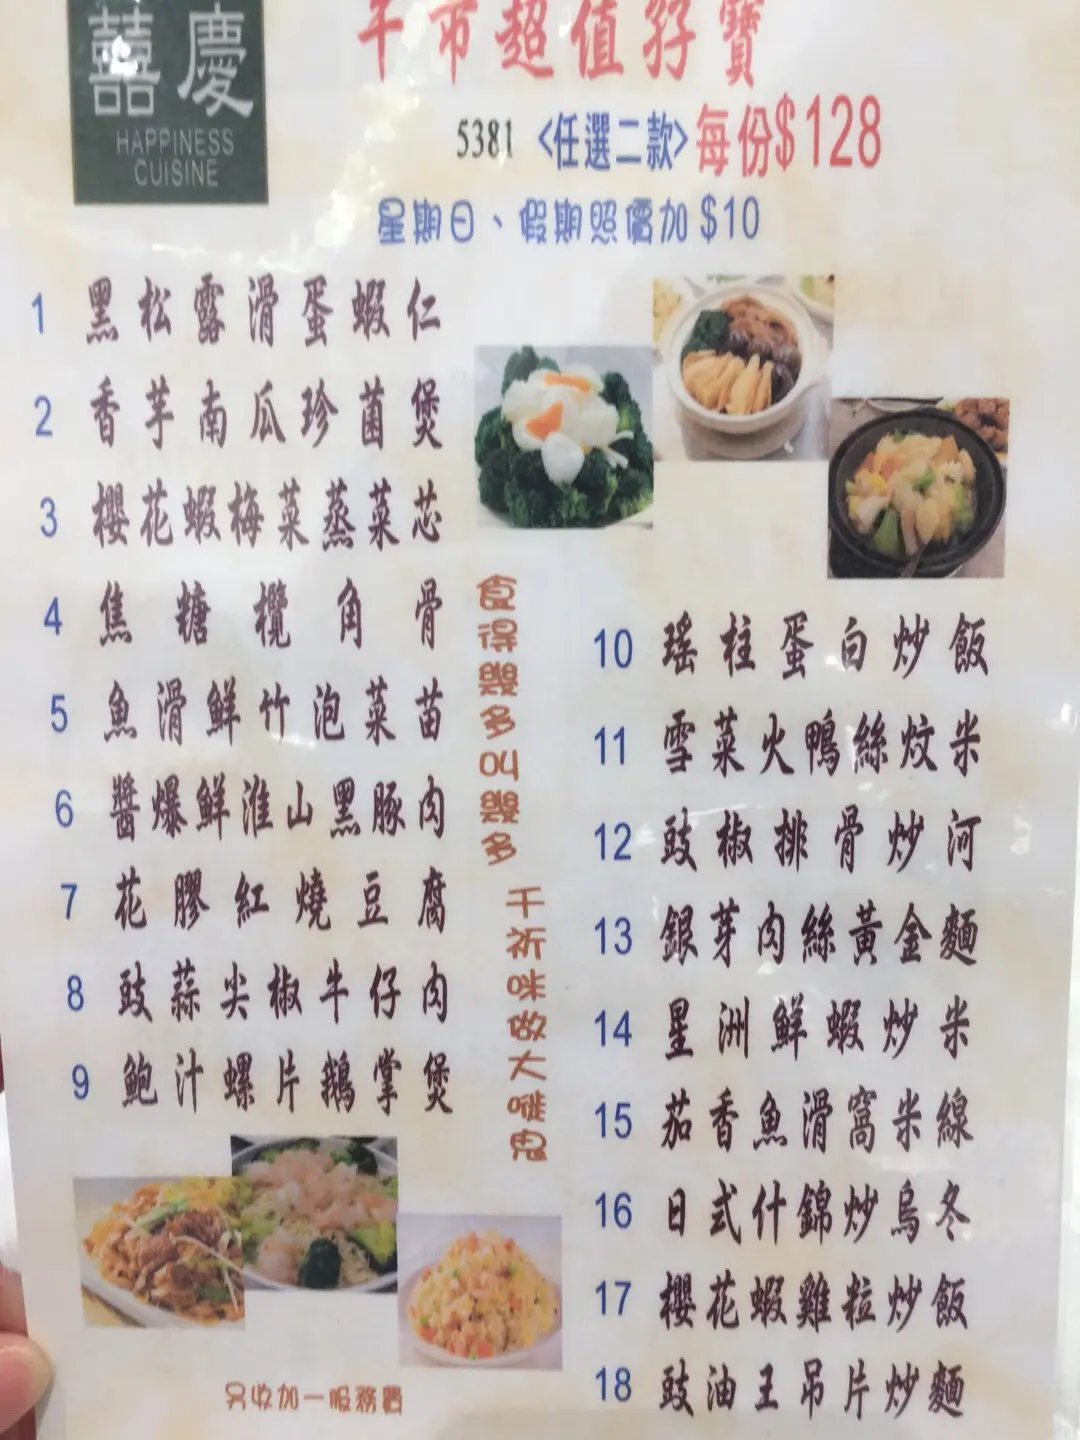 囍慶
HAPPINESS
CUISINE
午市超值孖寶
5381 <任選二款> 每份$128
星期日、假期照價加 $10
1 黑松露滑蛋蝦仁
2 香芋南瓜珍菌煲
3 櫻花蝦梅菜蒸菜芯
4 焦糖欖角骨
5 魚滑鮮竹泡菜苗
6 醬爆鮮淮山黑豚肉
7 花膠紅燒豆腐
8 豉蒜尖椒牛仔肉
9 鮑汁螺片鵝掌煲
食得幾多叫幾多
千祈咪做大嘥鬼
10 瑤柱蛋白炒飯
11 雪菜火鴨絲炆米
12 豉椒排骨炒河
13 銀芽肉絲黃金麵
14 星洲鮮蝦炒米
15 茄香魚滑窩米線
16 日式什錦炒烏冬
17 櫻花蝦雞粒炒飯
18 豉油王吊片炒麵
另收加一服務費